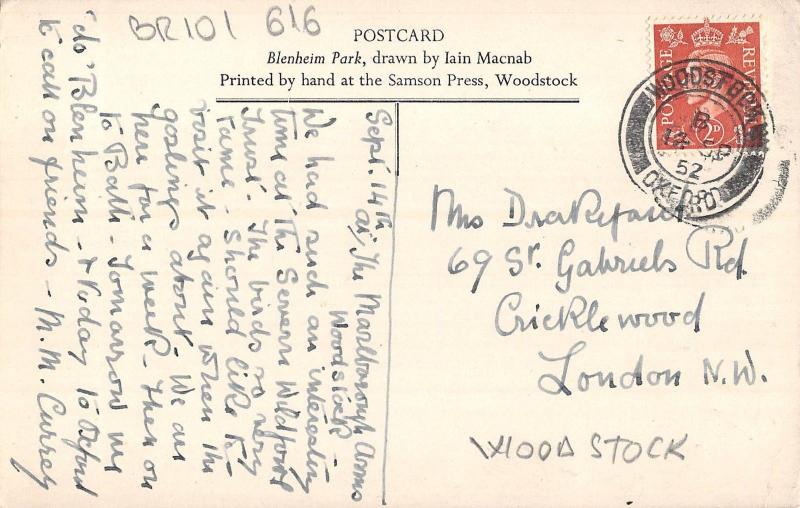 BR101 616
POSTCARD
Blenheim Park, drawn by Iain Macnab
Printed by hand at the Samson Press, Woodstock
POSTAGE REVENUE
2D
WOODSTOCK
B
SP
52
OXFORD
Sept. 14th
at, The Marlborough Arms
Woodstock -
We had such an interesting
time at the Severn Wildfowl
Trust. The birds so very
tame - Should like to
visit it again when the
goslings about. We are
here for a week - Then on
to Bath - Tomorrow we
"do" Blenheim - & today to Oxford
to call on friends - M.M. Currey
Mrs Drakeford
69 St. Gabriels Rd.
Cricklewood
London N.W.
WOODSTOCK